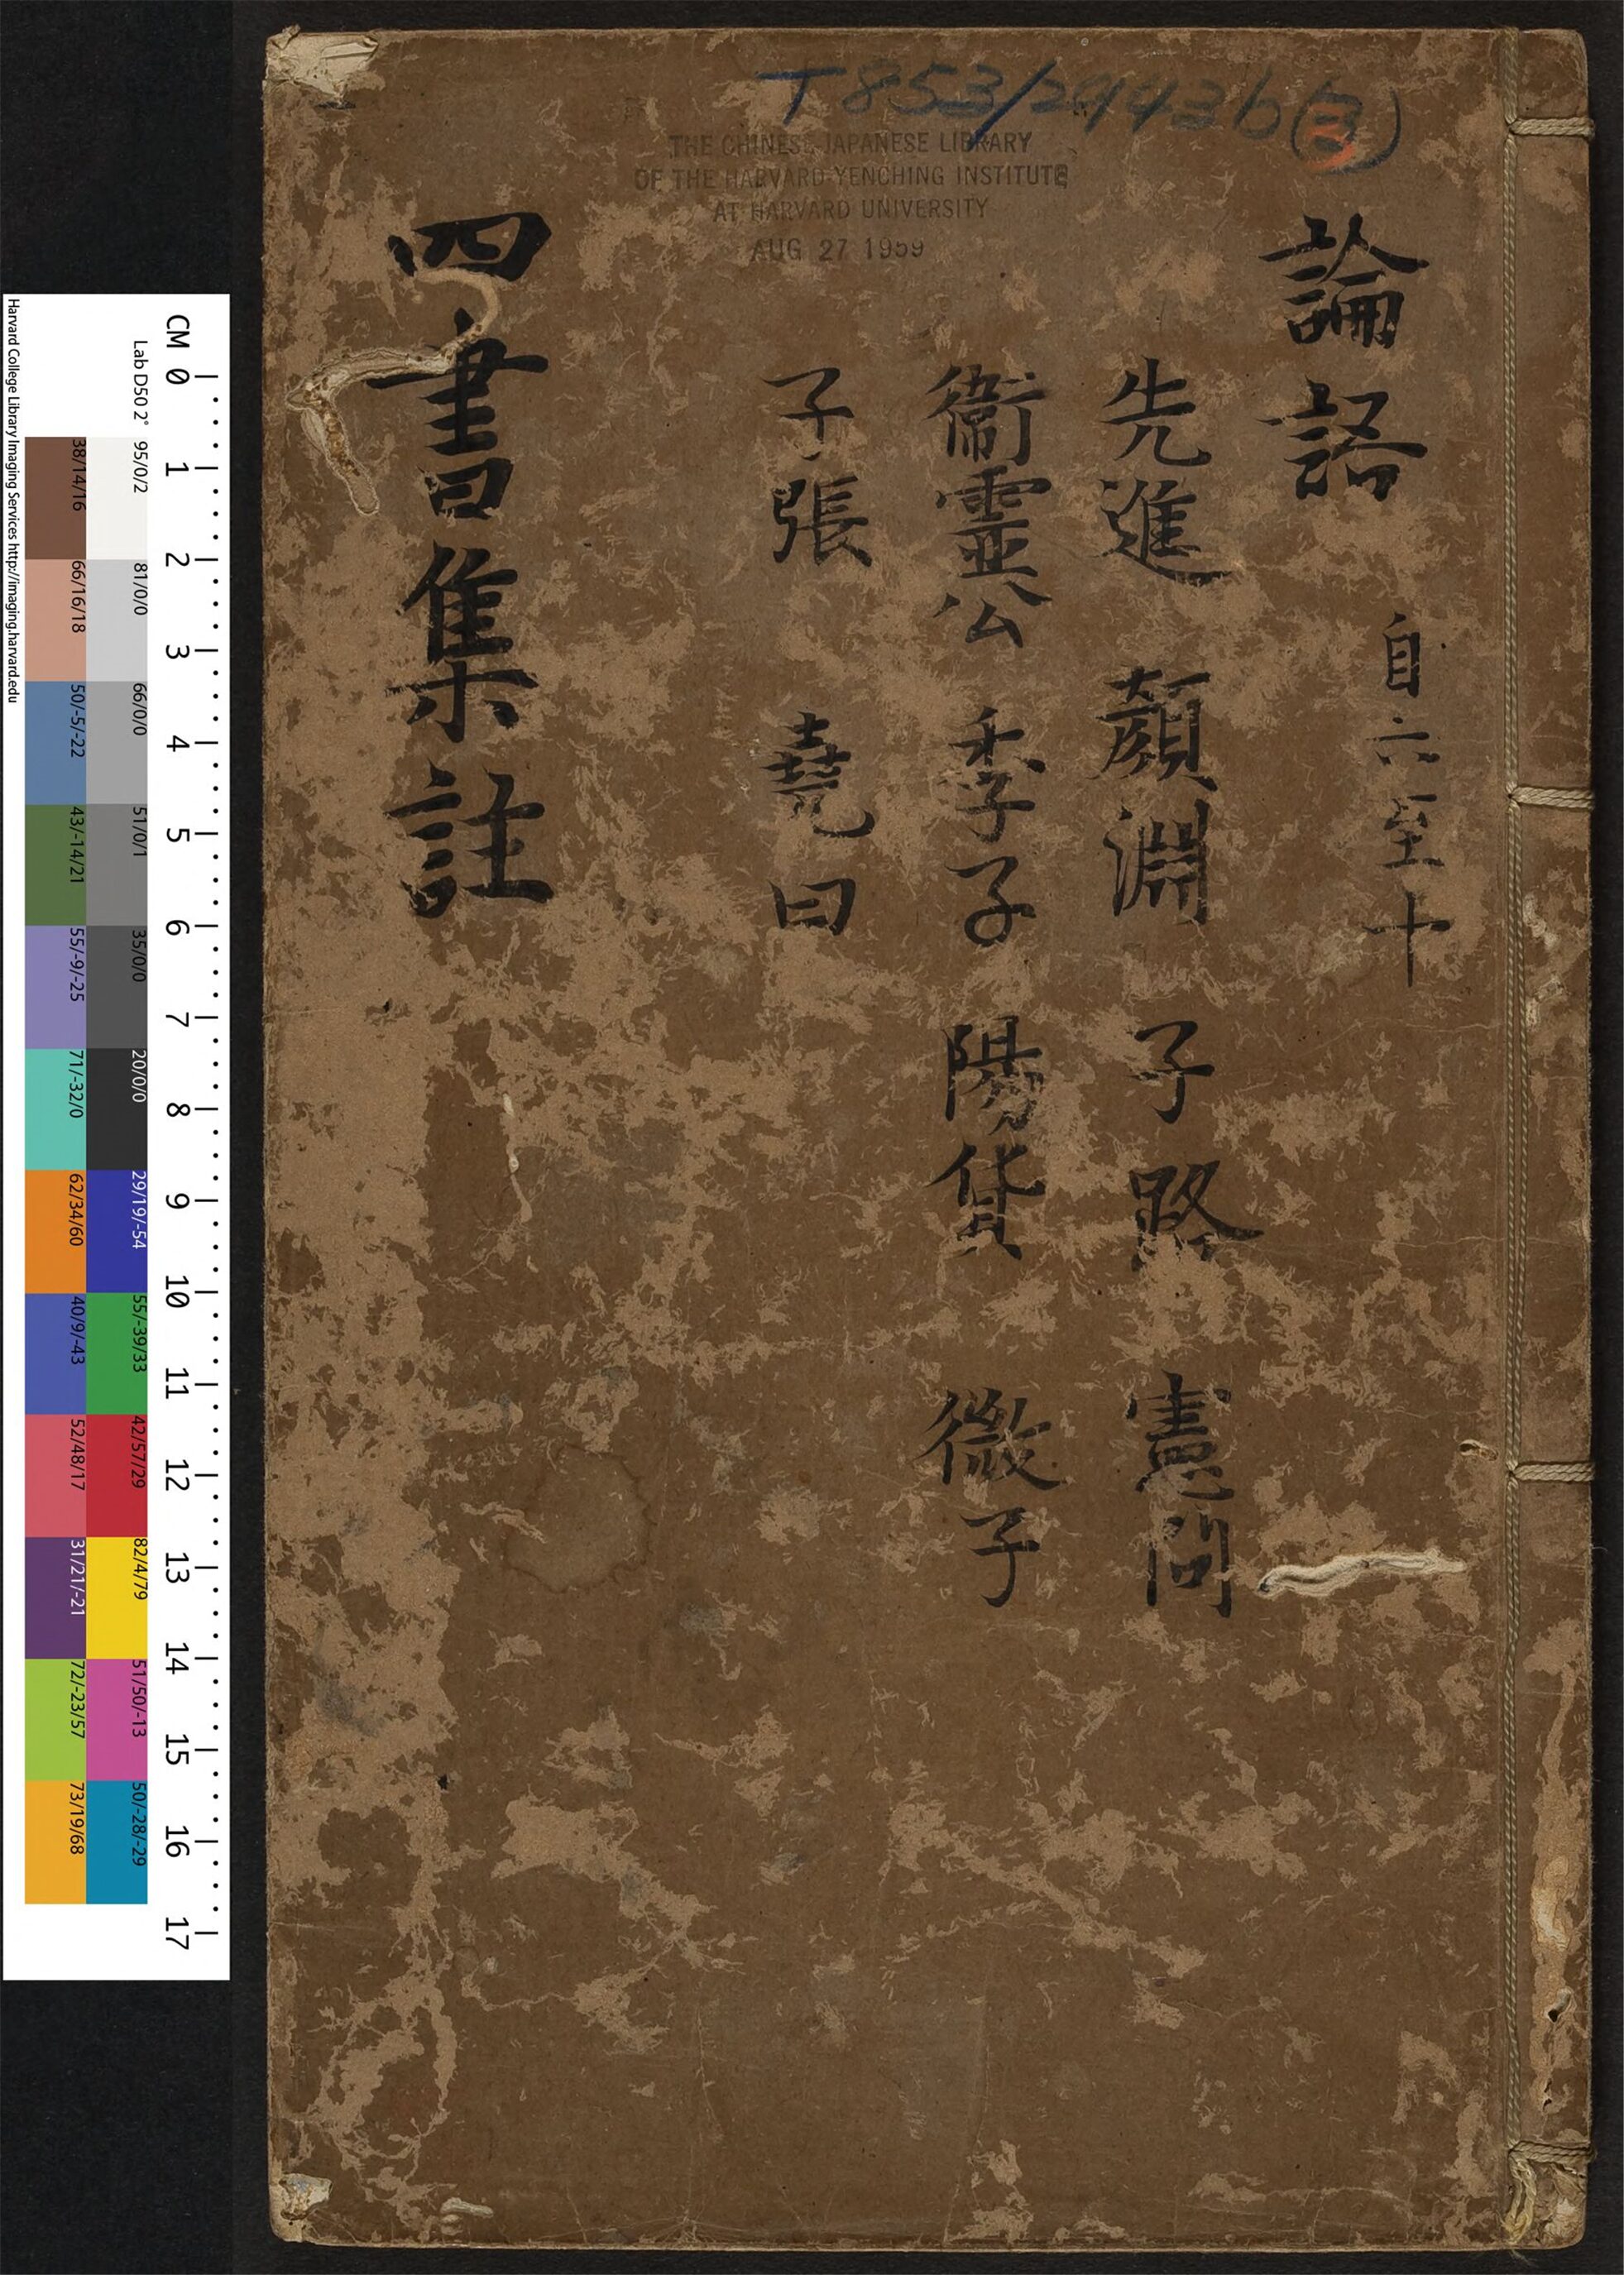 T 853/2943b(3)
THE CHINESE-JAPANESE LIBRARY
OF THE HARVARD-YENCHING INSTITUTE
AT HARVARD UNIVERSITY
AUG 27 1959
論語 自六至十
先進 顏淵 子路 憲問
衞霊公 季子 陽貨 微子
子張 堯曰
四書集註
CM 0 1 2 3 4 5 6 7 8 9 10 11 12 13 14 15 16 17
Lab D50 2° 95/0/2 81/0/0 66/0/0 51/0/1 35/0/0 20/0/0 29/19/-54 55/-39/33 42/57/29 82/4/79 51/50/-13 50/-28/-29
38/14/16 66/16/18 50/-5/-22 43/-14/21 55/-9/-25 71/-32/0 62/34/60 40/9/-43 52/48/17 31/21/-21 72/-23/57 73/19/68
Harvard College Library Imaging Services http://imaging.harvard.edu